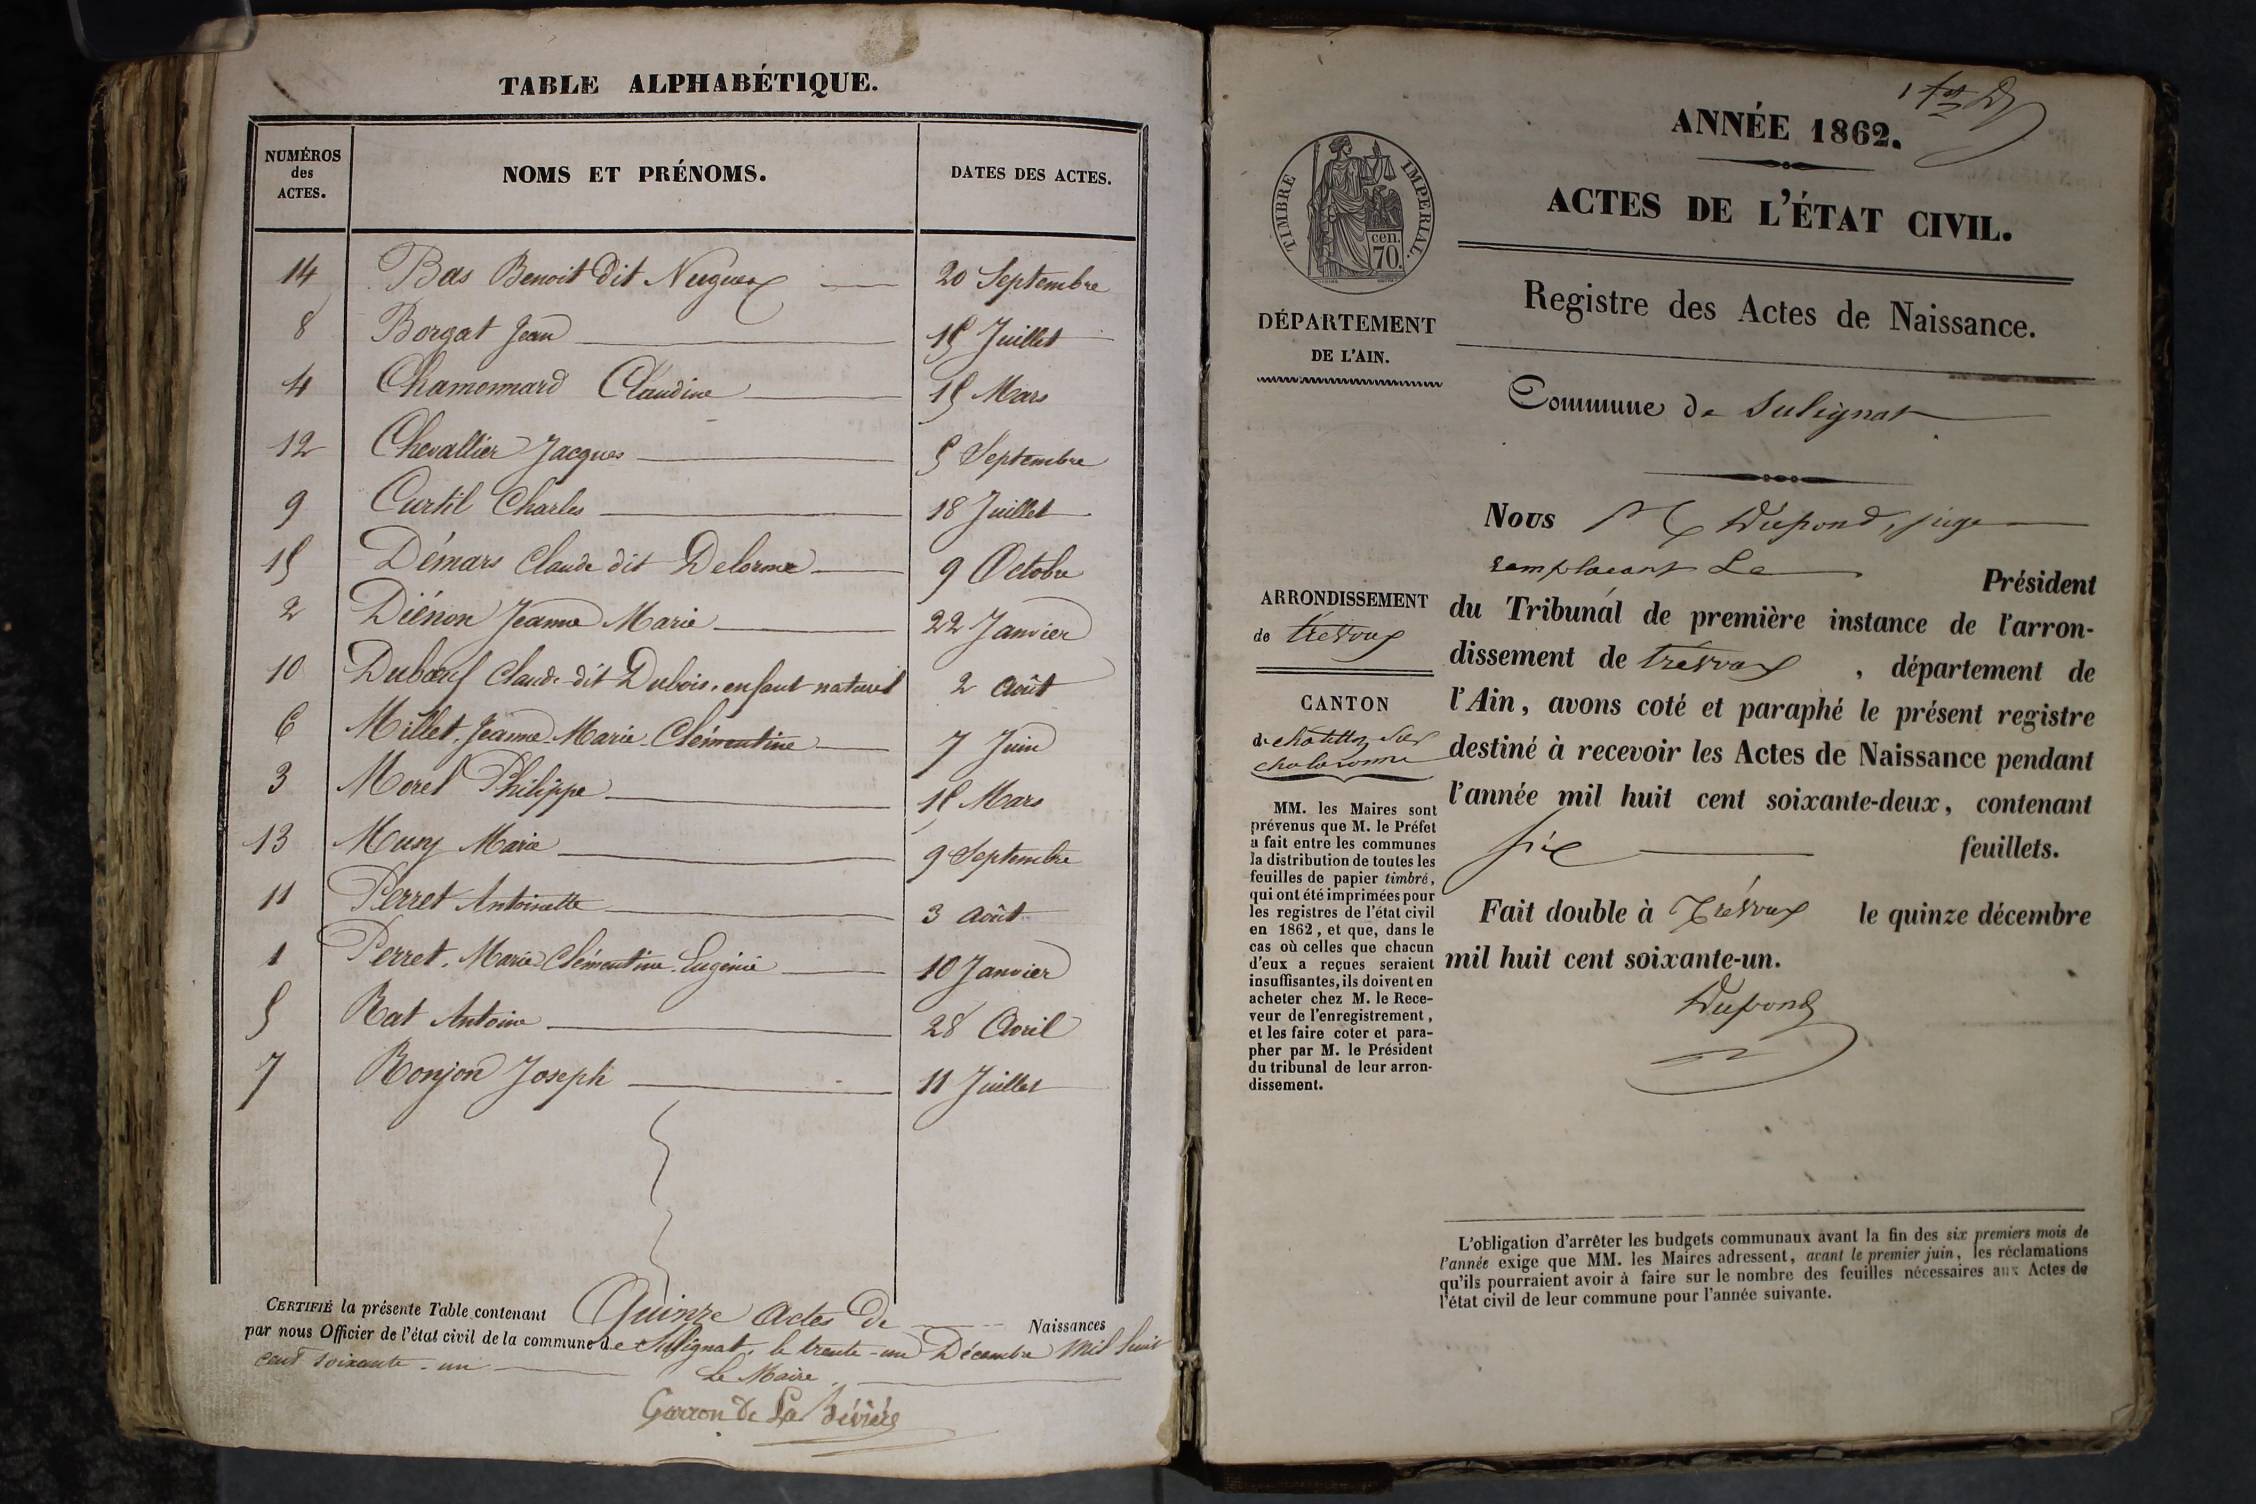 TABLE ALPHABÉTIQUE.
NUMÉROS
des
ACTES.
NOMS ET PRÉNOMS.
DATES DES ACTES.
14 Bas Benoit dit Nugues 20 Septembre
8 Borgat Jean 15 Juillet
4 Chamonnard Claudine 15 Mars
12 Chevallier Jacques 5 Septembre
9 Curtil Charles 18 Juillet
15 Démars Claude dit Delorme 9 Octobre
2 Diénon Jeanne Marie 22 Janvier
10 Dubœuf Claude dit Dubois, enfant naturel 2 Août
6 Millet Jeanne Marie Clémentine 7 Juin
3 Morel Philippe 15 Mars
13 Muny Marie 9 Septembre
11 Perret Antoinette 3 Août
1 Perret Marie Clémentine Eugénie 10 Janvier
5 Rat Antoine 28 Avril
7 Ronjon Joseph 11 Juillet
CERTIFIÉ la présente Table contenant Quinze actes de Naissances
par nous Officier de l'état civil de la commune de Sulignat, le trente-un Décembre mil huit
cent soixante-un
Le Maire
Garron de La Bévière
ANNÉE 1862.
ACTES DE L'ÉTAT CIVIL.
Registre des Actes de Naissance.
Commune de Sulignat
TIMBRE IMPERIAL.
cen.
70.
DÉPARTEMENT
DE L'AIN.
ARRONDISSEMENT
de trévoux
CANTON
de chatillon sur
chalaronne
MM. les Maires sont
prévenus que M. le Préfet
a fait entre les communes
la distribution de toutes les
feuilles de papier timbré,
qui ont été imprimées pour
les registres de l'état civil
en 1862, et que, dans le
cas où celles que chacun
d'eux a reçues seraient
insuffisantes, ils doivent en
acheter chez M. le Rece-
veur de l'enregistrement,
et les faire coter et para-
pher par M. le Président
du tribunal de leur arron-
dissement.
Nous Dupond, juge
remplacant Le Président
du Tribunal de première instance de l'arron-
dissement de trévoux, département de
l'Ain, avons coté et paraphé le présent registre
destiné à recevoir les Actes de Naissance pendant
l'année mil huit cent soixante-deux, contenant
six feuillets.
Fait double à Trévoux le quinze décembre
mil huit cent soixante-un.
Dupond
L'obligation d'arrêter les budgets communaux avant la fin des six premiers mois de
l'année exige que MM. les Maires adressent, avant le premier juin, les réclamations
qu'ils pourraient avoir à faire sur le nombre des feuilles nécessaires aux Actes de
l'état civil de leur commune pour l'année suivante.